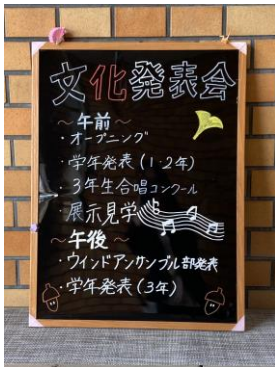 文化発表会
～午前～
・オープニング
・学年発表(1・2年)
・3年生合唱コンクール
・展示見学
～午後～
・ウインドアンサンブル部発表
・学年発表(3年)